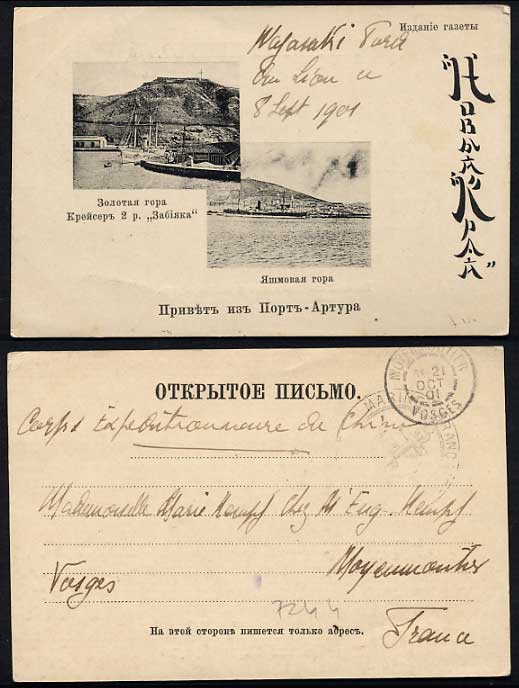 Изданіе газеты
Nagasaki
8 Sept 1901
„Новый Край“
Золотая гора
Крейсеръ 2 р. „Забіяка“
Яшмовая гора
Привѣтъ изъ Портъ-Артура
21
OCT
01
VOSGES
ОТКРЫТОЕ ПИСЬМО.
Corps Expéditionnaire de Chine
Mademoiselle Marie Kempf chez M Eug. Kempf
Moyenmoutier
Vosges
France
7244
На этой сторонѣ пишется только адресъ.